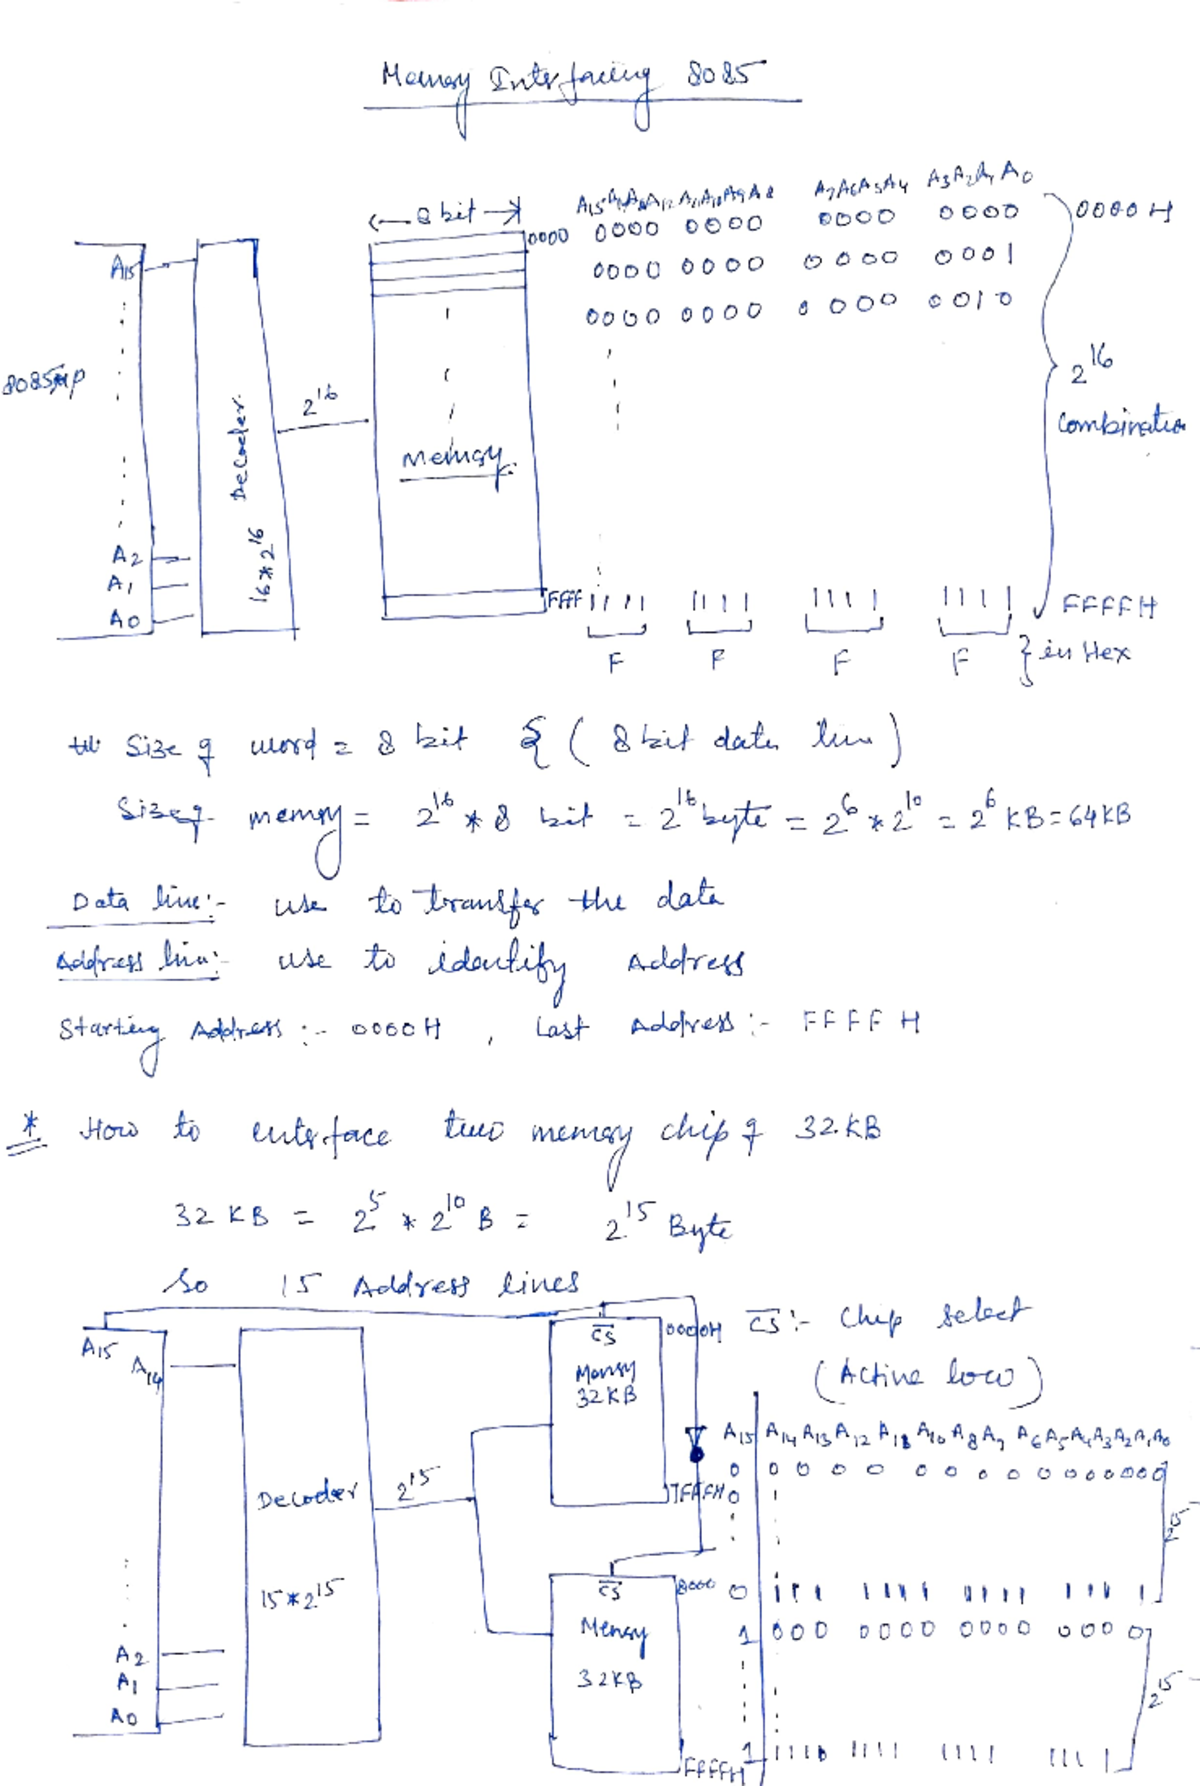 Memory Interfacing 8085
← 8 bit →
A15 A14 A13 A12 A11 A10 A9 A8 A7 A6 A5 A4 A3 A2 A1 A0
0000 0000 0000 0000 0000 0000H
0000 0000 0000 0001
0000 0000 0000 0010
A15
8085μp
Decoder
16*2^16
2^16
Memory
2^16
Combination
A2
A1
A0
FFFF 1111 1111 1111 1111 FFFFH
F F F F } in Hex
Size of word = 8 bit { ( 8 bit data line )
Size of memory = 2^16 * 8 bit = 2^16 byte = 2^6 * 2^10 = 2^6 KB = 64KB
Data line:- use to transfer the data
Address line:- use to identify Address
Starting Address :- 0000H , Last Address :- FFFF H
* How to interface two memory chip of 32KB
32 KB = 2^5 * 2^10 B = 2^15 Byte
So 15 Address lines
A15
A14
Decoder
15*2^15
2^15
A2
A1
A0
CS
Memory
32KB
0000H
7FFFH
CS
Memory
32KB
8000
FFFFH
CS :- Chip select
(Active low)
A15 A14 A13 A12 A10 A8 A7 A6 A5 A4 A3 A2 A1 A0
0 0 0 0 0 0 0 0 0 0 0 0 0 0 0
0
2^15
0 111 1111 1111 111 1
1 000 0000 0000 0000
2^15
1 1111 1111 1111 1111